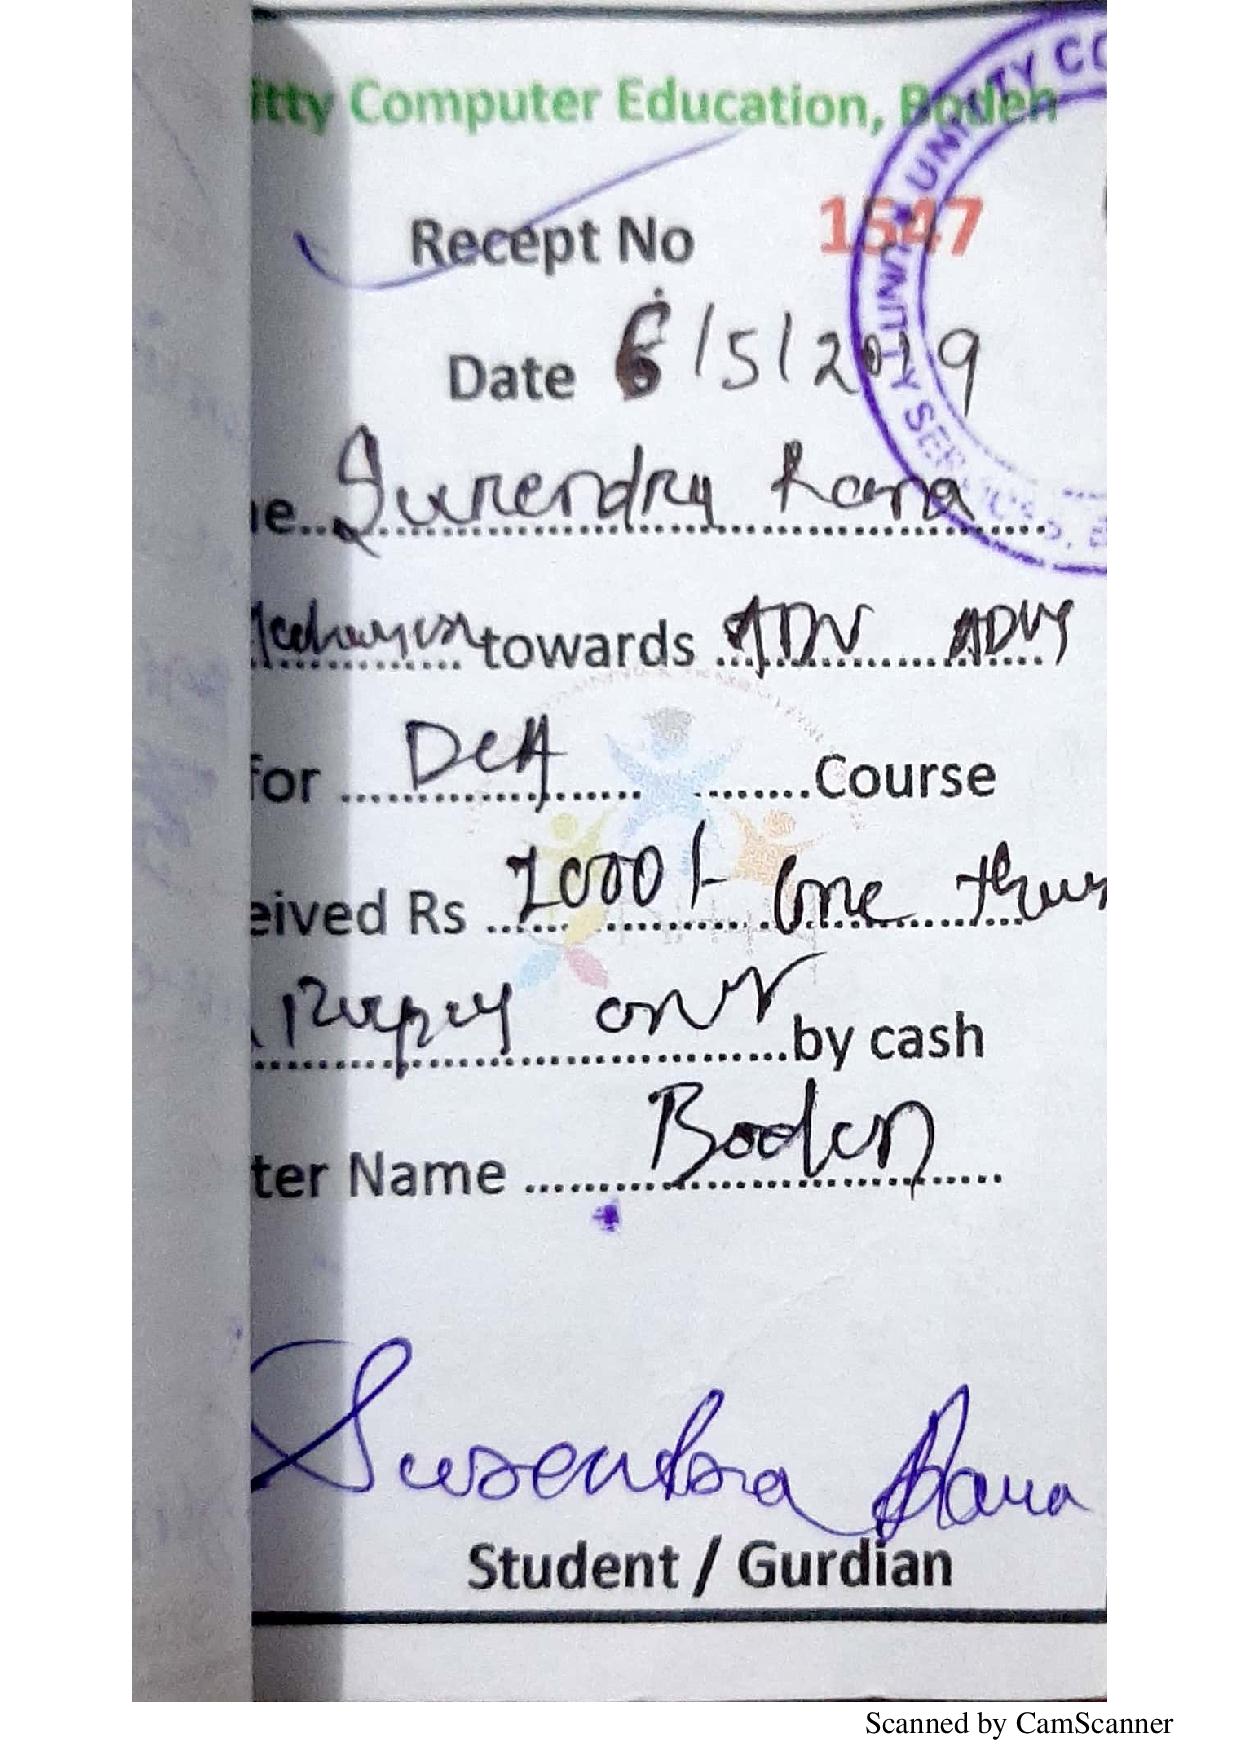 itty Computer Education, Boden
Recept No 1547
Date 6/5/2019
e... Surendra Rana
towards ADV ADV
for DCA Course
eived Rs 1000/- One thous
Rupey only by cash
ter Name Boden
Surendra Rana
Student / Gurdian
UNITY CO
UNITY SERVICES, B
Scanned by CamScanner